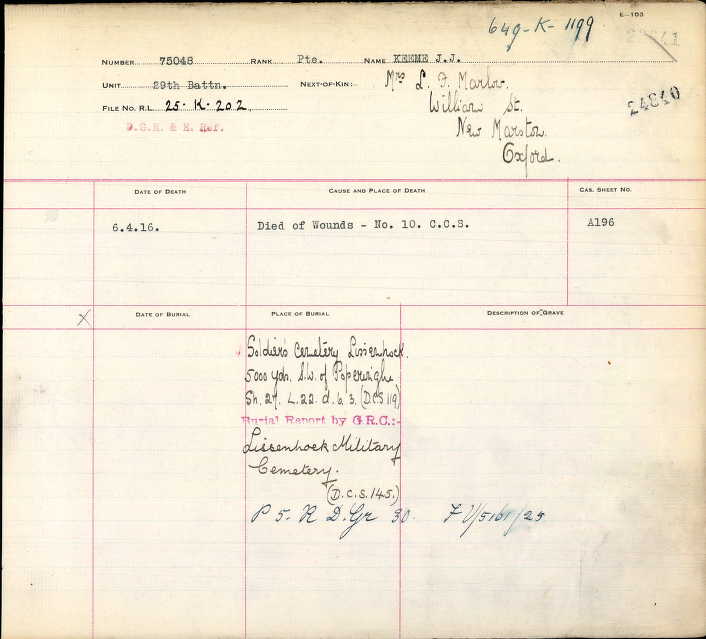 E-103
649-K-1199
NUMBER 75048 RANK Pte. NAME KEENE J.J.
UNIT 29th Battn. NEXT-OF-KIN:- Mrs L. F. Marlow.
FILE NO. R.L. 25-K-202 William St. 24840
D.G.R. & E. Ref. New Marston
Oxford.
DATE OF DEATH CAUSE AND PLACE OF DEATH CAS. SHEET NO.
6.4.16. Died of Wounds - No. 10. C.C.S. A196
X DATE OF BURIAL PLACE OF BURIAL DESCRIPTION OF GRAVE
Soldiers Cemetery Lissenhock.
5000 yds. S.W. of Poperinghe
Sh. 27. L.22. d. 6. 3. (D.C.S 119)
Burial Report by G.R.C.:-
Lissenhoek Military
Cemetery.
(D.C.S. 145.)
P 5. R D. Gr 30.